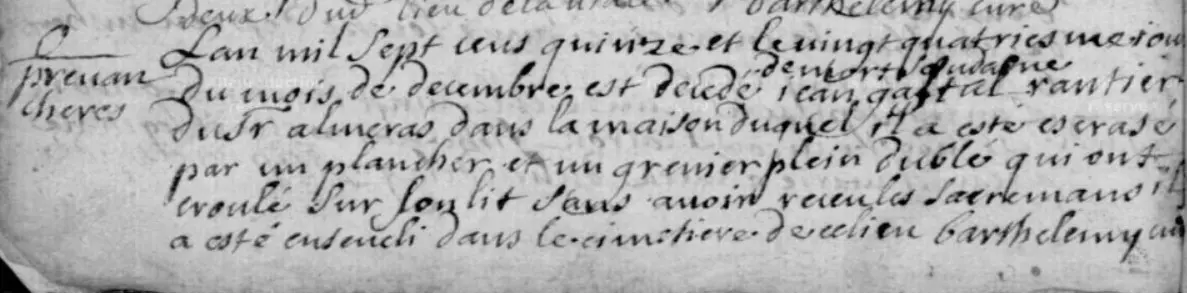 deux dud lieu de la barthelemy curé
prevan
cheres
Lan mil sept cens quinze et le vingt quatriesme jou
de mort soudaine
du mois de decembre est decedé jean gastal rantier
du sr almeras dans la maison duquel il a esté escrasé
par un plancher et un grenier plein du blé qui ont
croulé sur son lit sans avoir receu les sacremans il
a esté enseveli dans le cimetiere de ce lieu barthelemy cu